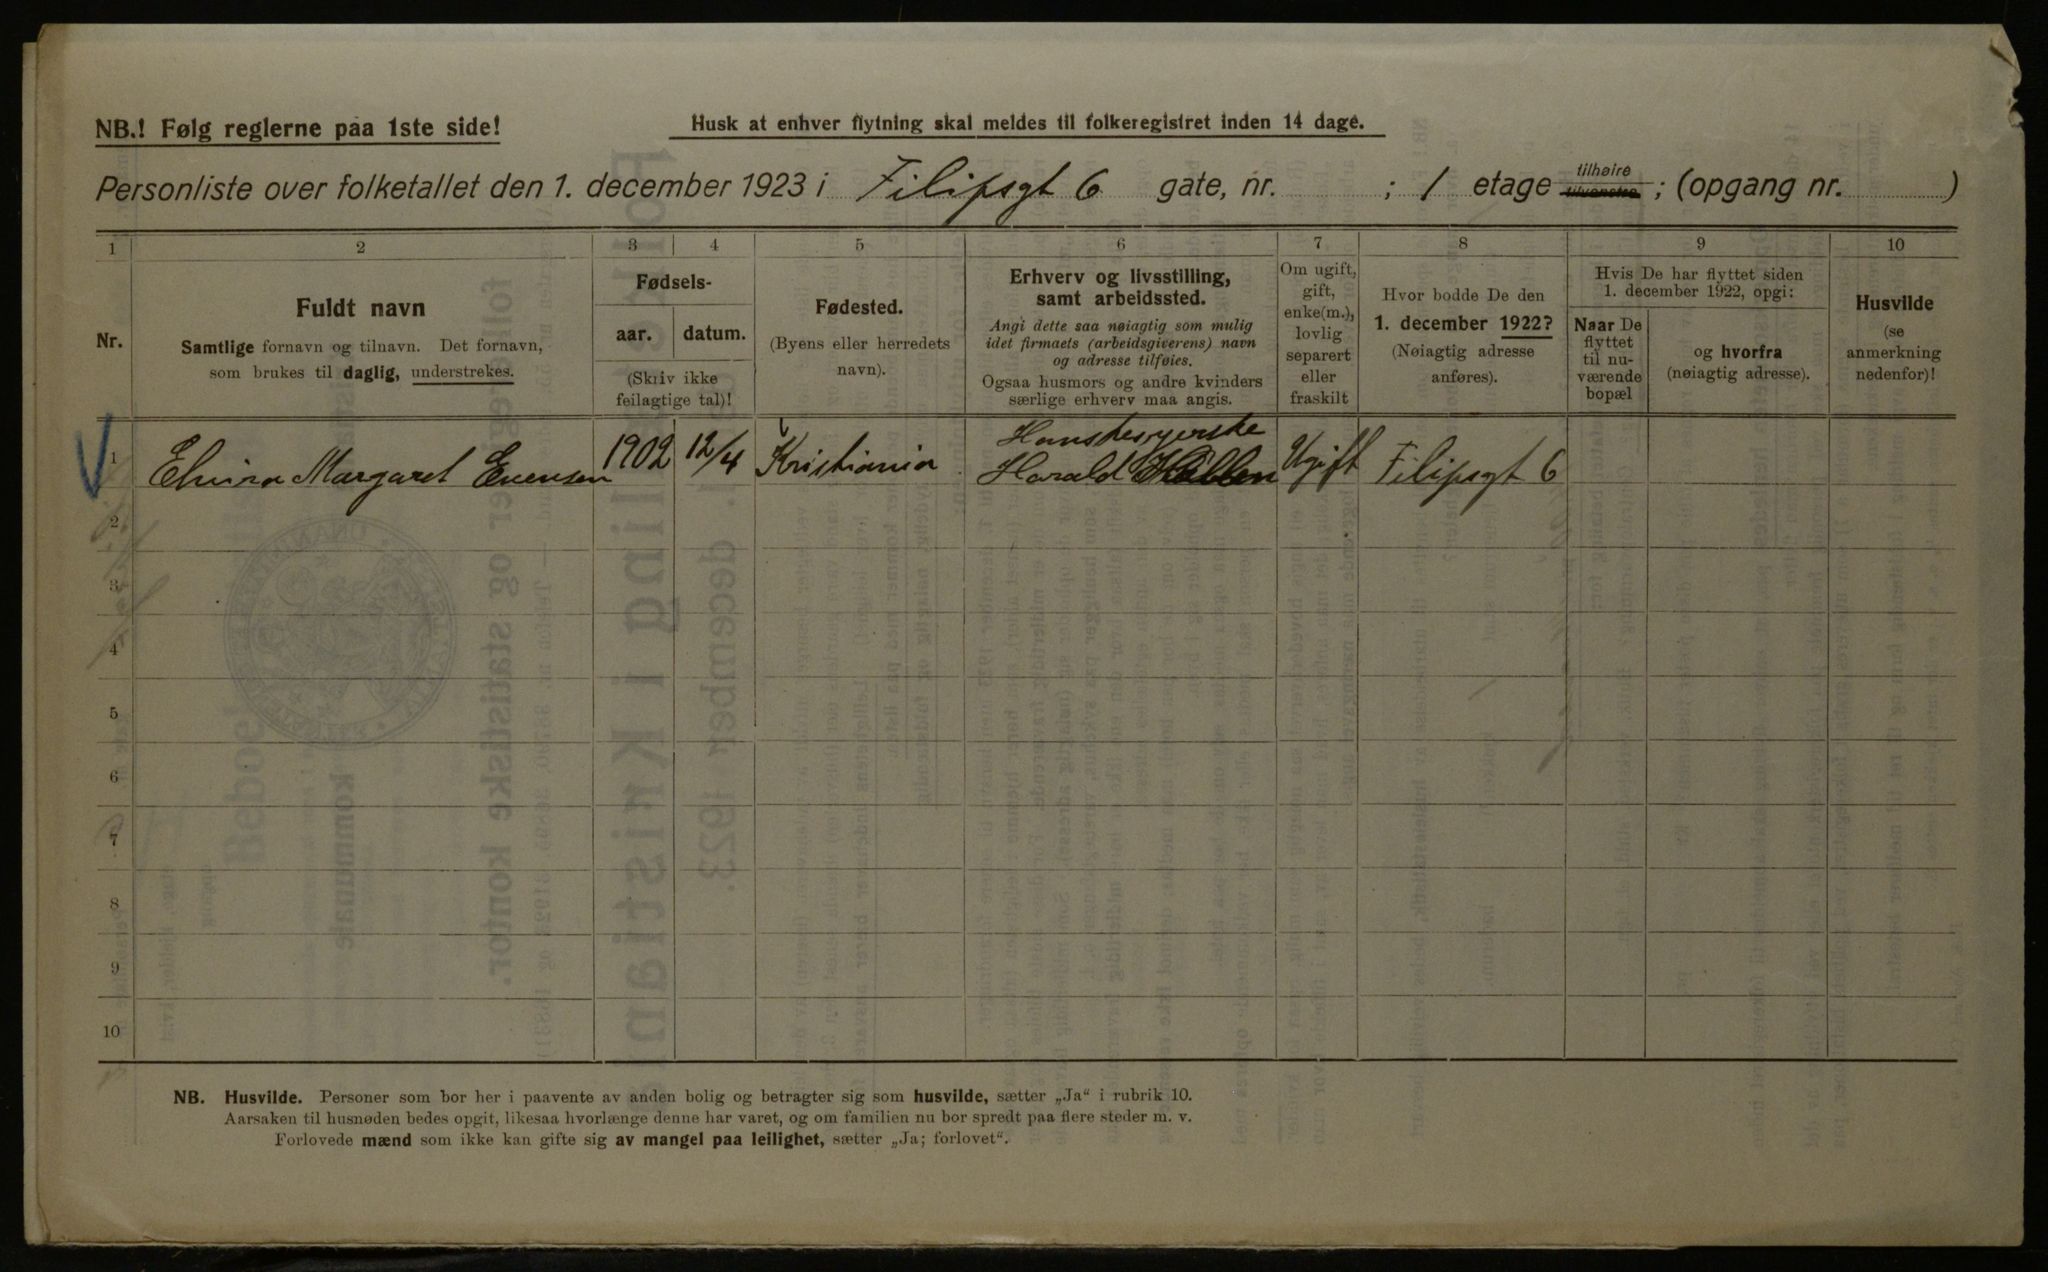 NB.! Følg reglerne paa 1ste side!
Husk at enhver flytning skal meldes til folkeregistret inden 14 dage.
Personliste over folketallet den 1. december 1923 i Filipsgt 6 gate, nr. ; 1 etage tilhøire tilvenstre ; (opgang nr. )
1 2 3 4 5 6 7 8 9 10
Nr.
Fuldt navn
Samtlige fornavn og tilnavn. Det fornavn,
som brukes til daglig, understrekes.
Fødsels-
aar. datum.
(Skriv ikke
feilagtige tal)!
Fødested.
(Byens eller herredets
navn).
Erhverv og livsstilling,
samt arbeidssted.
Angi dette saa nøiagtig som mulig
idet firmaets (arbeidsgiverens) navn
og adresse tilføies.
Ogsaa husmors og andre kvinders
særlige erhverv maa angis.
Om ugift,
gift,
enke(m.),
lovlig
separert
eller
fraskilt
Hvor bodde De den
1. december 1922?
(Nøiagtig adresse
anføres).
Hvis De har flyttet siden
1. december 1922, opgi:
Naar De
flyttet
til nu-
værende
bopæl
og hvorfra
(nøiagtig adresse).
Husvilde
(se
anmerkning
nedenfor)!
1 Elvira Margaret Evensen 1902 12/4 Kristiania Hanskesyerske Harald Ugift Filipsgt 6
2
3
4
5
6
7
8
9
10
NB. Husvilde. Personer som bor her i paavente av anden bolig og betragter sig som husvilde, sætter „Ja“ i rubrik 10.
Aarsaken til husnøden bedes opgit, likesaa hvorlænge denne har varet, og om familien nu bor spredt paa flere steder m. v.
Forlovede mænd som ikke kan gifte sig av mangel paa leilighet, sætter „Ja; forlovet“.